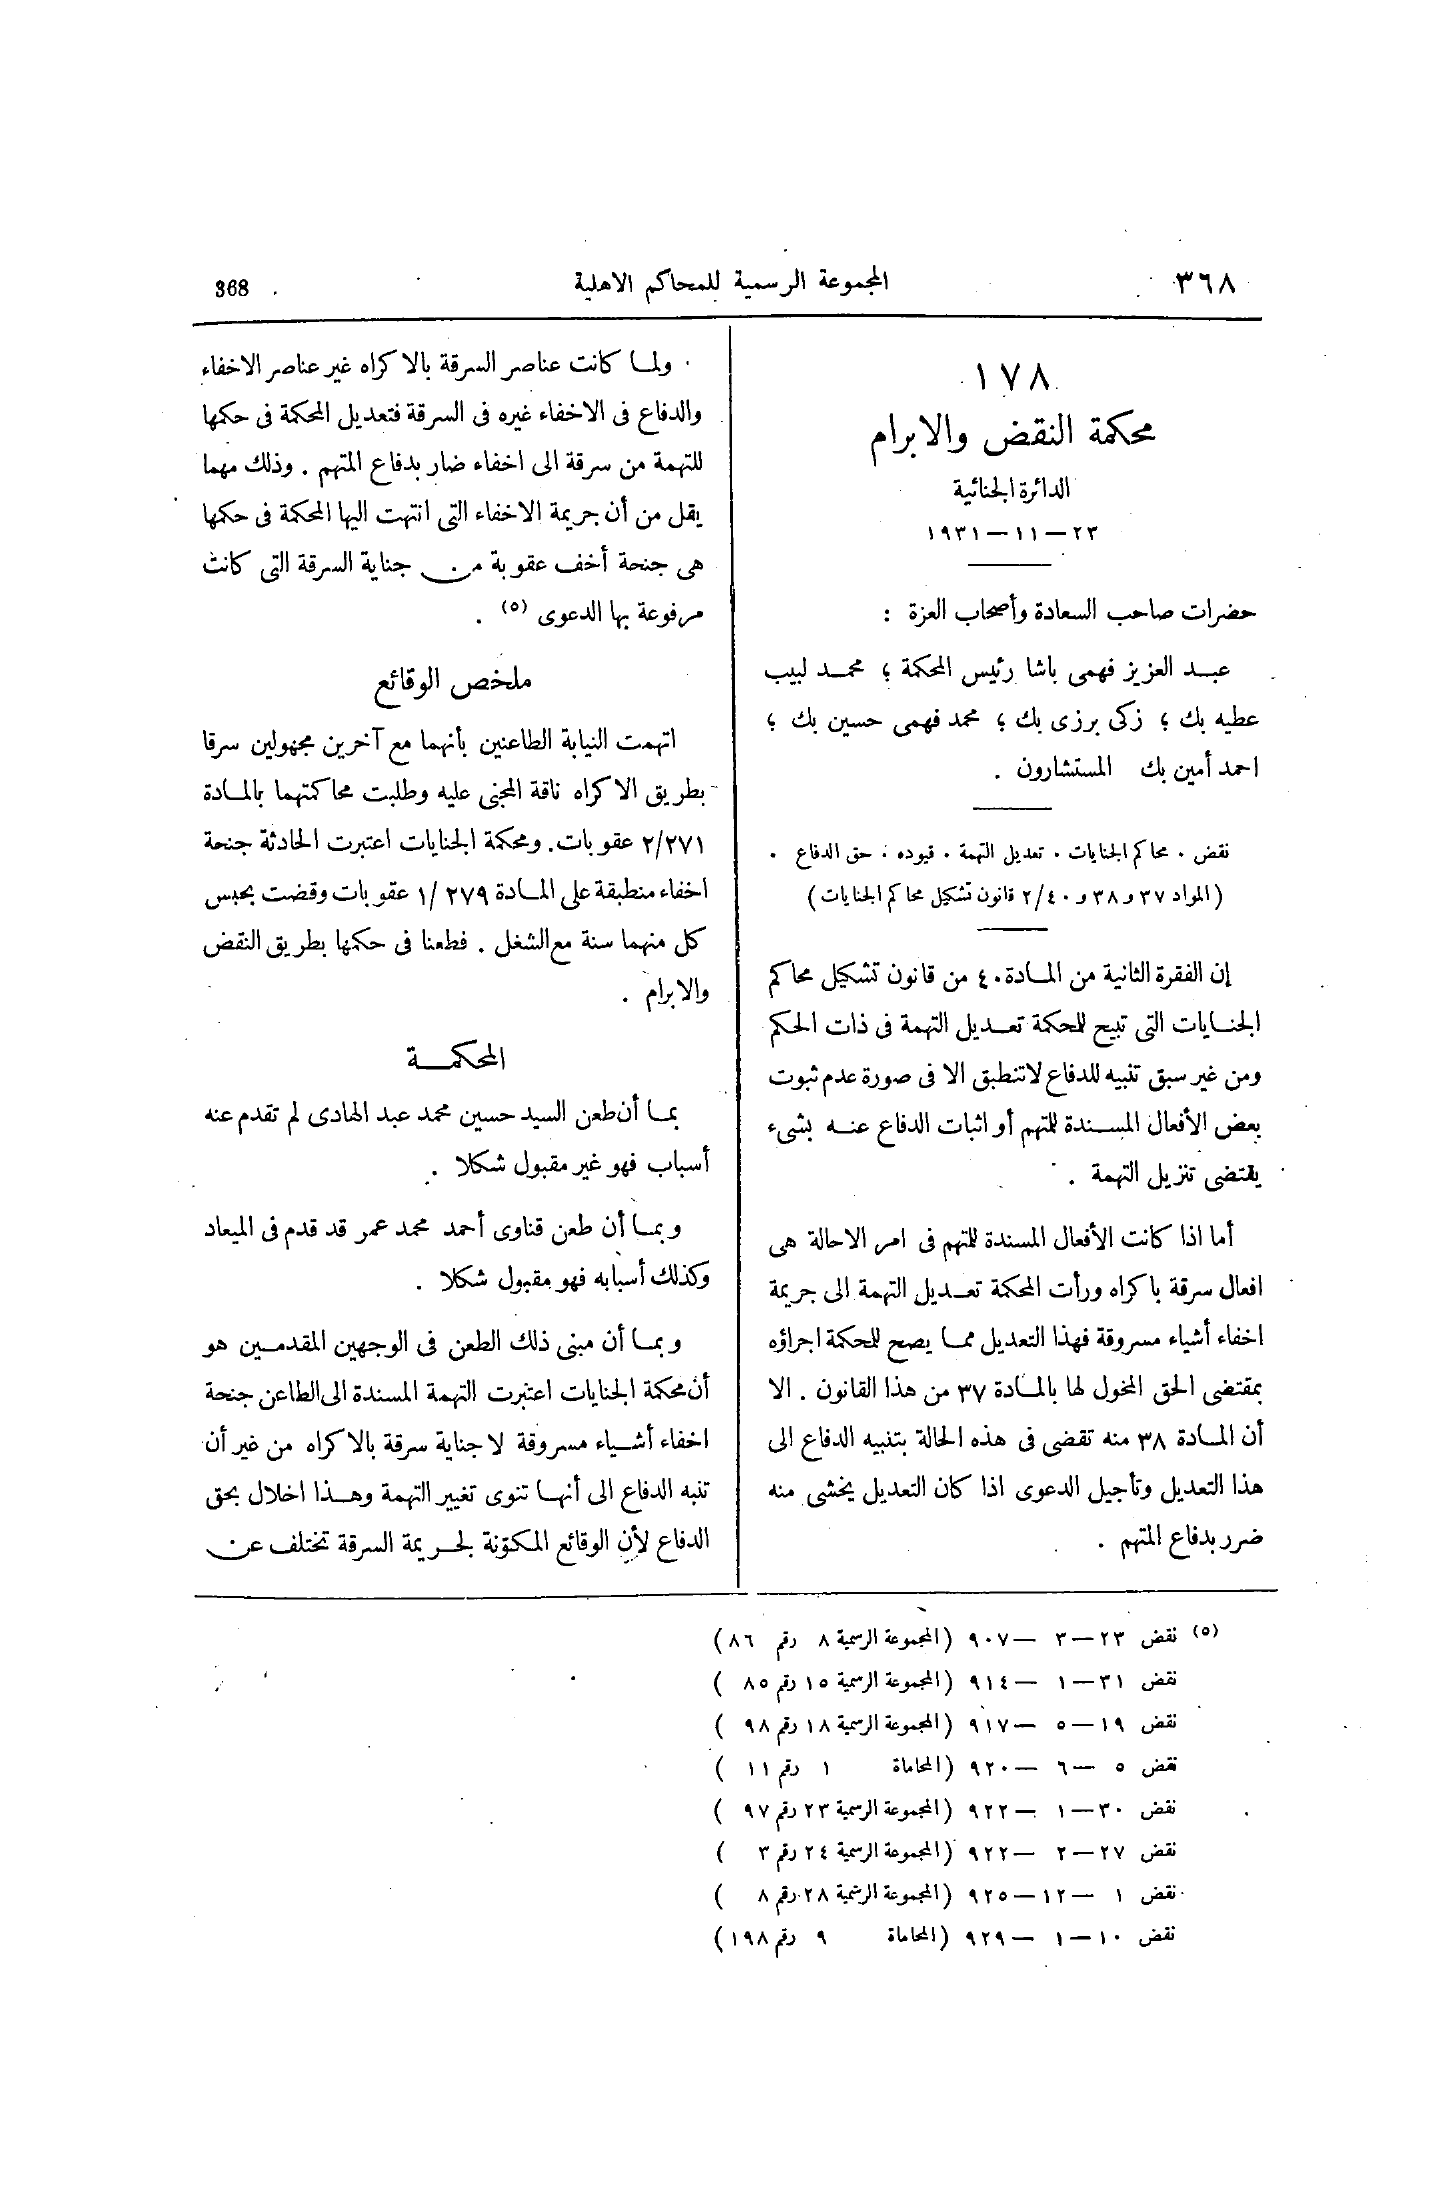 ٣٦٨
المجموعة الرسمية للمحاكم الاهلية
368
١٧٨
محكمة النقض والابرام
الدائرة الجنائية
٢٣ — ١١ — ١٩٣١
حضرات صاحب السعادة وأصحاب العزة :
عبد العزيز فهمى باشا رئيس المحكمة ؛ محمد لبيب
عطيه بك ؛ زكى برزى بك ؛ محمد فهمى حسين بك ؛
احمد أمين بك المستشارون .
نقض . محاكم الجنايات . تعديل التهمة . قيوده . حق الدفاع .
(المواد ٣٧ و ٣٨ و ٢/٤٠ قانون تشكيل محاكم الجنايات)
إن الفقرة الثانية من المادة ٤٠ من قانون تشكيل محاكم
الجنايات التى تبيح للمحكمة تعديل التهمة فى ذات الحكم
ومن غير سبق تنبيه للدفاع لاتنطبق الا فى صورة عدم ثبوت
بعض الأفعال المسندة للمتهم أو اثبات الدفاع عنه بشىء
يقتضى تنزيل التهمة .
أما اذا كانت الأفعال المسندة للمتهم فى امر الاحالة هى
افعال سرقة باكراه ورأت المحكمة تعديل التهمة الى جريمة
اخفاء أشياء مسروقة فهذا التعديل مما يصح للمحكمة اجراؤه
بمقتضى الحق المخول لها بالمادة ٣٧ من هذا القانون . الا
أن المادة ٣٨ منه تقضى فى هذه الحالة بتنبيه الدفاع الى
هذا التعديل وتأجيل الدعوى اذا كان التعديل يخشى منه
ضرر بدفاع المتهم .
ولما كانت عناصر السرقة بالاكراه غير عناصر الاخفاء
والدفاع فى الاخفاء غيره فى السرقة فتعديل المحكمة فى حكمها
للتهمة من سرقة الى اخفاء ضار بدفاع المتهم . وذلك مهما
يقل من أن جريمة الاخفاء التى انتهت اليها المحكمة فى حكمها
هى جنحة أخف عقوبة من جناية السرقة التى كانت
مرفوعة بها الدعوى (٥) .
ملخص الوقائع
اتهمت النيابة الطاعنين بأنهما مع آخرين مجهولين سرقا
بطريق الاكراه ناقة المجنى عليه وطلبت محاكمتهما بالمادة
٢/٢٧١ عقوبات. ومحكمة الجنايات اعتبرت الحادثة جنحة
اخفاء منطبقة على المادة ٢٧٩ /١ عقوبات وقضت بحبس
كل منهما سنة مع الشغل . فطعنا فى حكمها بطريق النقض
والابرام .
المحكمة
بما أن طعن السيد حسين محمد عبد الهادى لم تقدم عنه
أسباب فهو غير مقبول شكلا .
وبما أن طعن قناوى أحمد محمد عمر قد قدم فى الميعاد
وكذلك أسبابه فهو مقبول شكلا .
وبما أن مبنى ذلك الطعن فى الوجهين المقدمين هو
أن محكمة الجنايات اعتبرت التهمة المسندة الى الطاعن جنحة
اخفاء أشياء مسروقة لا جناية سرقة بالاكراه من غير أن
تنبه الدفاع الى أنها تنوى تغيير التهمة وهذا اخلال بحق
الدفاع لأن الوقائع المكوّنة لجريمة السرقة تختلف عن
(٥) نقض ٢٣ — ٣ — ٩٠٧ (المجموعة الرسمية ٨ رقم ٨٦)
نقض ٣١ — ١ — ٩١٤ (المجموعة الرسمية ١٥ رقم ٨٥ )
نقض ١٩ — ٥ — ٩١٧ (المجموعة الرسمية ١٨ رقم ٩٨ )
نقض ٥ — ٦ — ٩٢٠ (المحاماة ١ رقم ١١ )
نقض ٣٠ — ١ — ٩٢٢ (المجموعة الرسمية ٢٣ رقم ٩٧ )
نقض ٢٧ — ٢ — ٩٢٢ (المجموعة الرسمية ٢٤ رقم ٣ )
نقض ١ — ١٢ — ٩٢٥ (المجموعة الرسمية ٢٨ رقم ٨ )
نقض ١٠ — ١ — ٩٢٩ (المحاماة ٩ رقم ١٩٨)